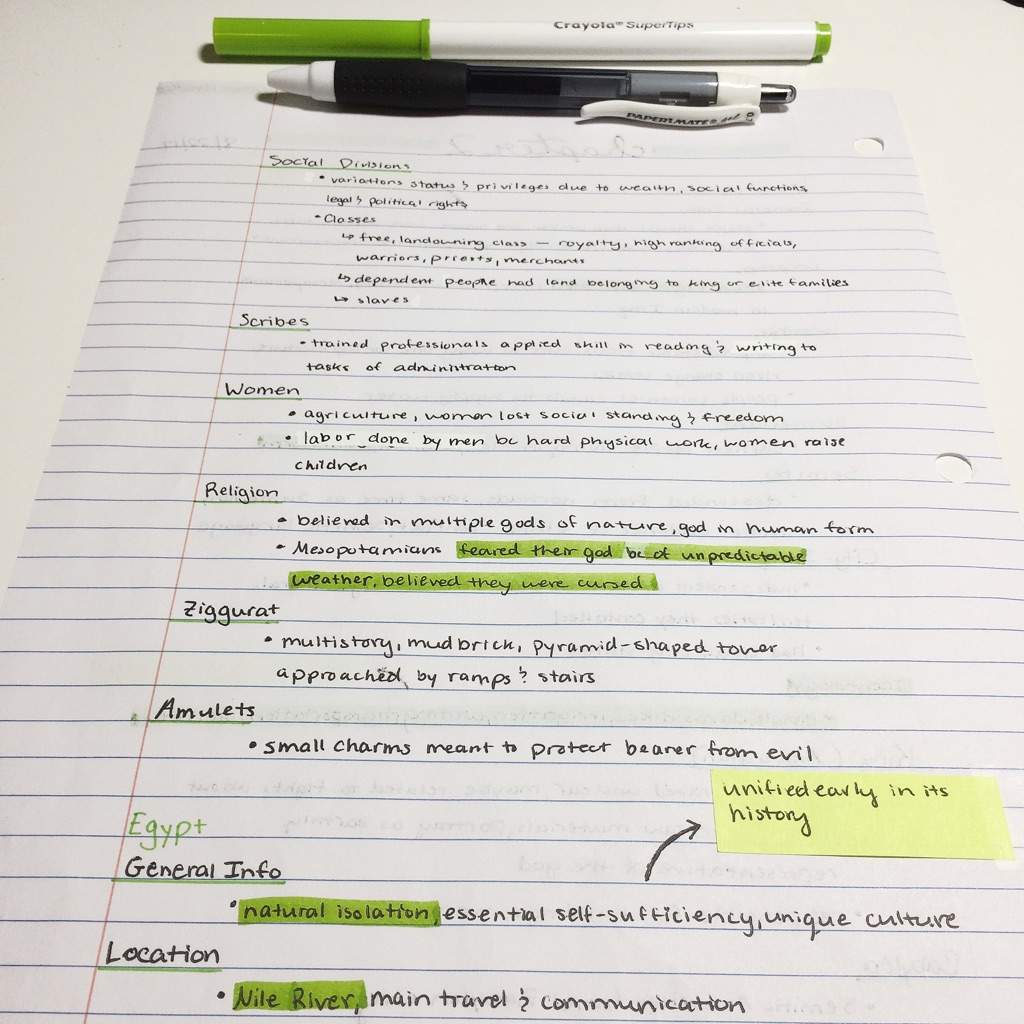 Crayola SuperTips
PAPERMATE gel 0.7
Social Divisions
• variations status & privileges due to wealth, social functions,
legal & political rights
• Classes
↳ free, landowning class — royalty, high ranking officials,
warriors, priests, merchants
↳ dependent people had land belonging to king or elite families
↳ slaves
Scribes
• trained professionals applied skill in reading & writing to
tasks of administration
Women
• agriculture, women lost social standing & freedom
• labor done by men bc hard physical work, women raise
children
Religion
• believed in multiple gods of nature, god in human form
• Mesopotamians feared their god bc of unpredictable
weather, believed they were cursed
Ziggurat
• multistory, mudbrick, pyramid-shaped tower
approached by ramps & stairs
Amulets
• small charms meant to protect bearer from evil
unified early in its
history
Egypt
General Info
• natural isolation, essential self-sufficiency, unique culture
Location
• Nile River, main travel & communication